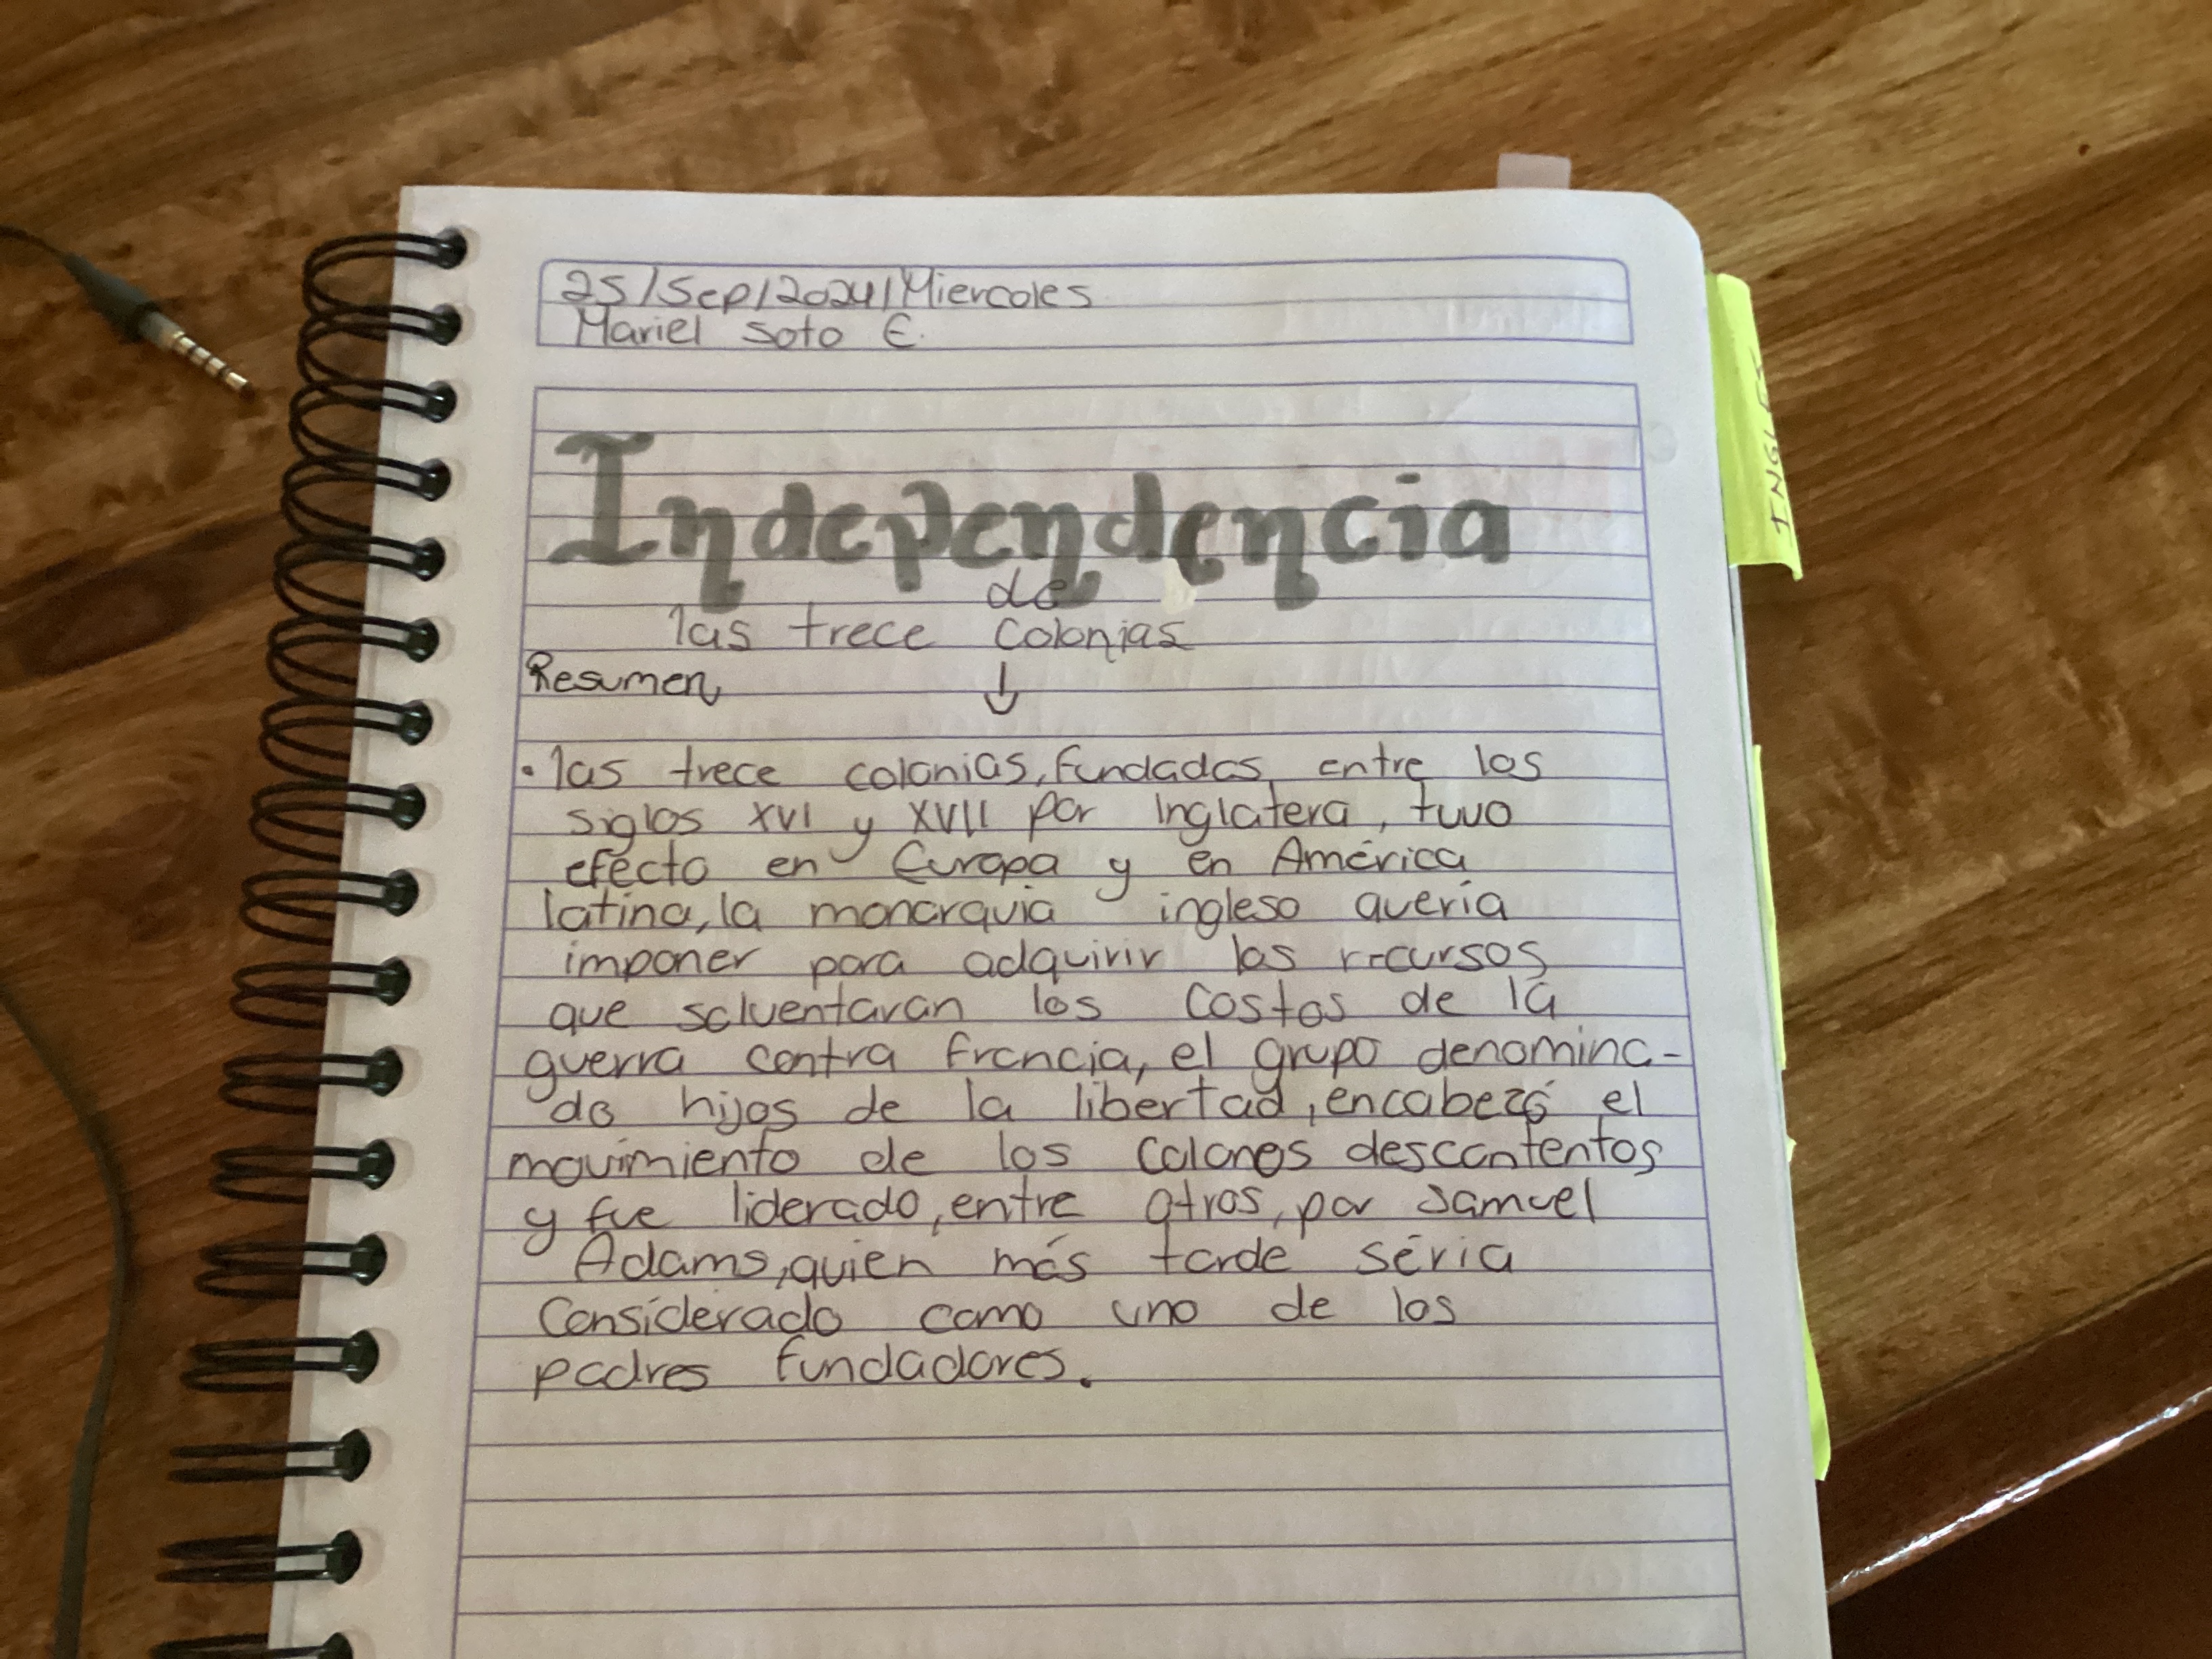 25/Sep/2024/Miercoles
Mariel Soto E.
Independencia
de
las trece colonias
Resumen
• las trece colonias, fundadas entre los
siglos XVI y XVII por Inglatera, tuvo
efecto en Europa y en América
latina, la monarquia inglesa quería
imponer para adquirir los recursos
que solventaran los costos de la
guerra contra francia, el grupo denomina-
do hijos de la libertad, encabezó el
movimiento de los colonos descontentos
y fue liderado, entre otros, por Samuel
Adams, quien más tarde séria
Considerado como uno de los
padres fundadores.
INGLES